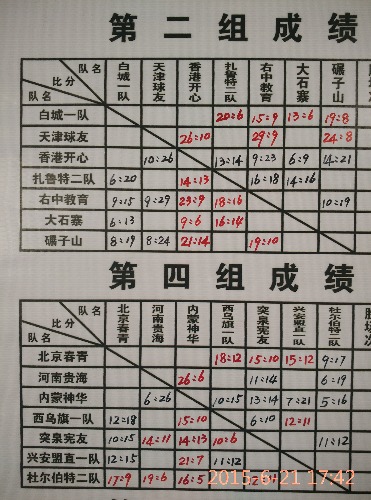 第二组成绩
队名 白城一队 天津球友 香港开心 扎鲁特二队 右中教育 大石寨 碾子山
比分
队名
白城一队 20=6 15=9 13=6 19=8
天津球友 26=10 29=9 24=8
香港开心 10=26 13=14 9=23 6=9 14=21
扎鲁特二队 6=20 14=13 16=18 14=16
右中教育 9=15 9=29 23=9 18=16 10=19
大石寨 6=13 9=6 16=14
碾子山 8=19 8=24 21=14 19=10
第四组成绩
队名 北京春青 河南贵海 内蒙神华 西乌旗一队 突泉宪友 兴安盟直一队 杜尔伯特二队
比分
队名
北京春青 18=12 15=10 15=12 9=17
河南贵海 26=6 11=14 6=19
内蒙神华 6=26 10=15 13=14 7=21 5=16
西乌旗一队 12=18 15=10 6=10 12=11
突泉宪友 10=15 14=11 14=13 10=6 11=12
兴安盟直一队 12=15 21=7 11=12
杜尔伯特二队 17=9 19=6 16=5
2015-6-21 17:42